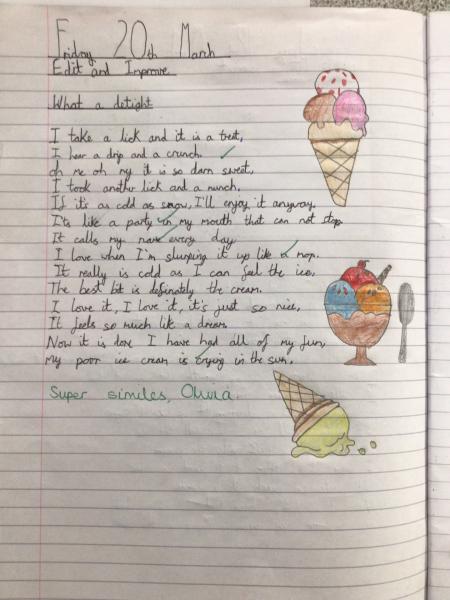 Friday 20th March
Edit and Improve
What a delight
I take a lick and it is a treat,
I hear a drip and a crunch.
oh me oh my it is so darn sweet,
I took another lick and a munch.
If it's as cold as snow, I'll enjoy it anyway.
It's like a party in my mouth that can not stop
It calls my name every day.
I love when I'm slurping it up like a mop.
It really is cold as I can feel the ice.
The best bit is definately the cream.
I love it, I love it, it's just so nice,
It feels so much like a dream.
Now it is done I have had all of my fun,
My poor ice cream is crying in the sun.
Super similes, Olivia.